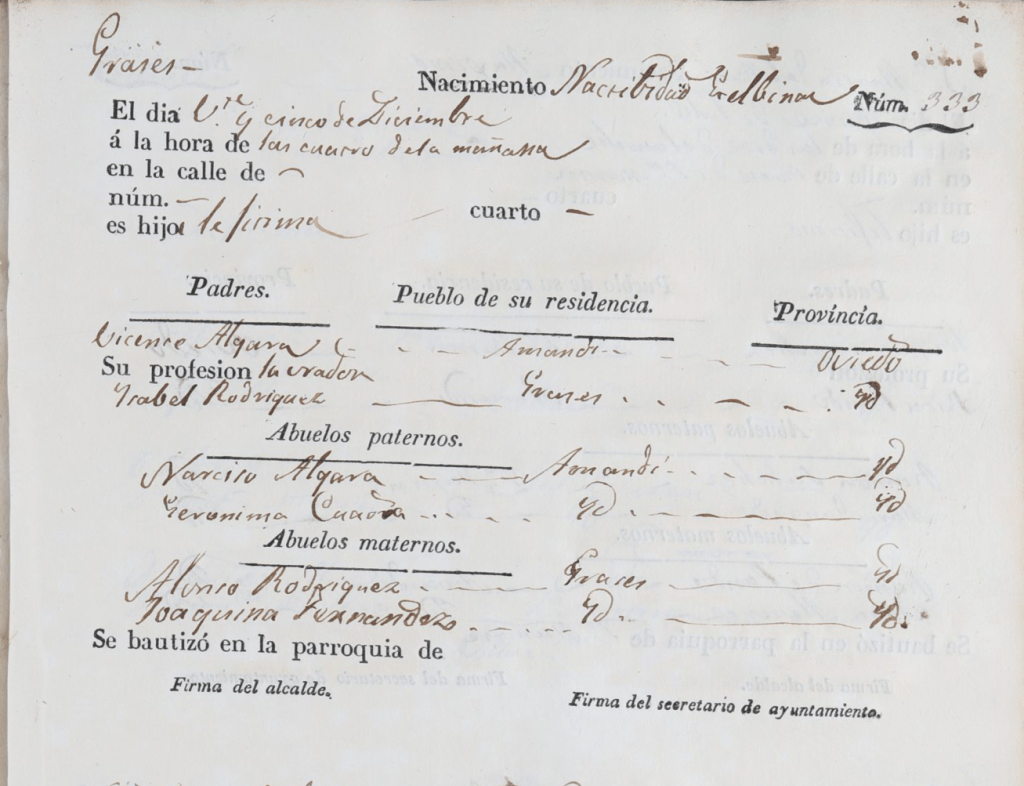 Grases-
Nacimiento Natibidad Balbina Núm. 333
El dia V.te y cinco de Diciembre
á la hora de las cuatro de la mañana
en la calle de -
núm. - cuarto -
es hijo lejitima
Padres. Pueblo de su residencia. Província.
Vicente Algara - - - Amandi - - - Oviedo
Su profesion labrador
Ysabel Rodriguez - Grases - - - Yd
Abuelos paternos.
Narciso Algara - - - Amandi - - - Yd
Geronima Cuadra - - - Yd - - - Yd
Abuelos maternos.
Alonso Rodriguez - Grases - Yd
Joaquina Fernandez - - - Yd - Yd.
Se bautizó en la parroquia de
Firma del alcalde. Firma del secretario de ayuntamiento.